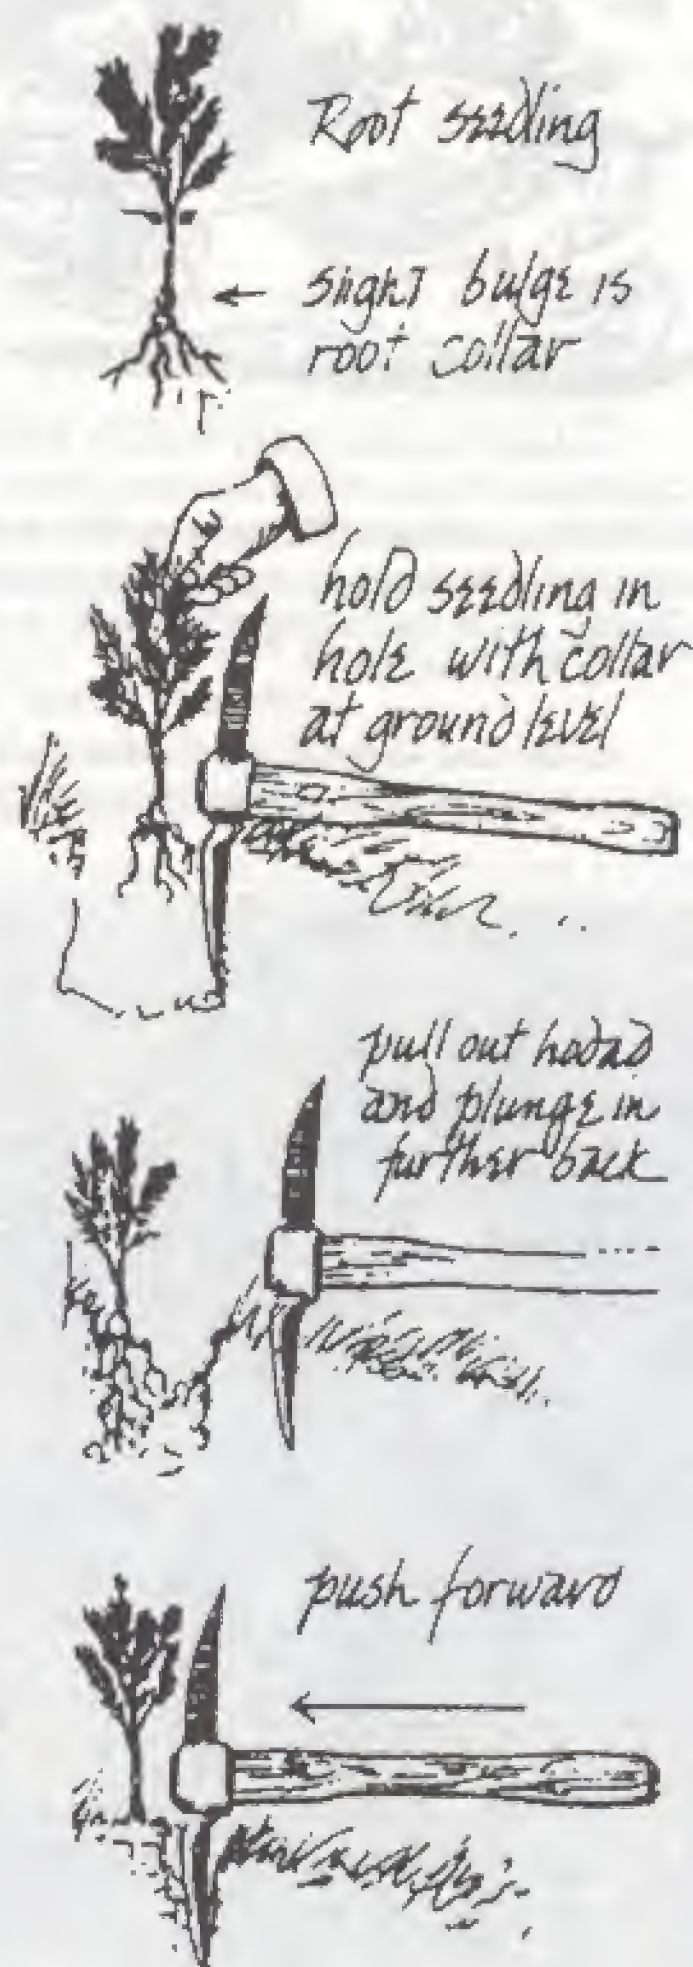 Root seedling
slight bulge is
root collar
hold seedling in
hole with collar
at ground level
pull out hodad
and plunge in
further back
push forward